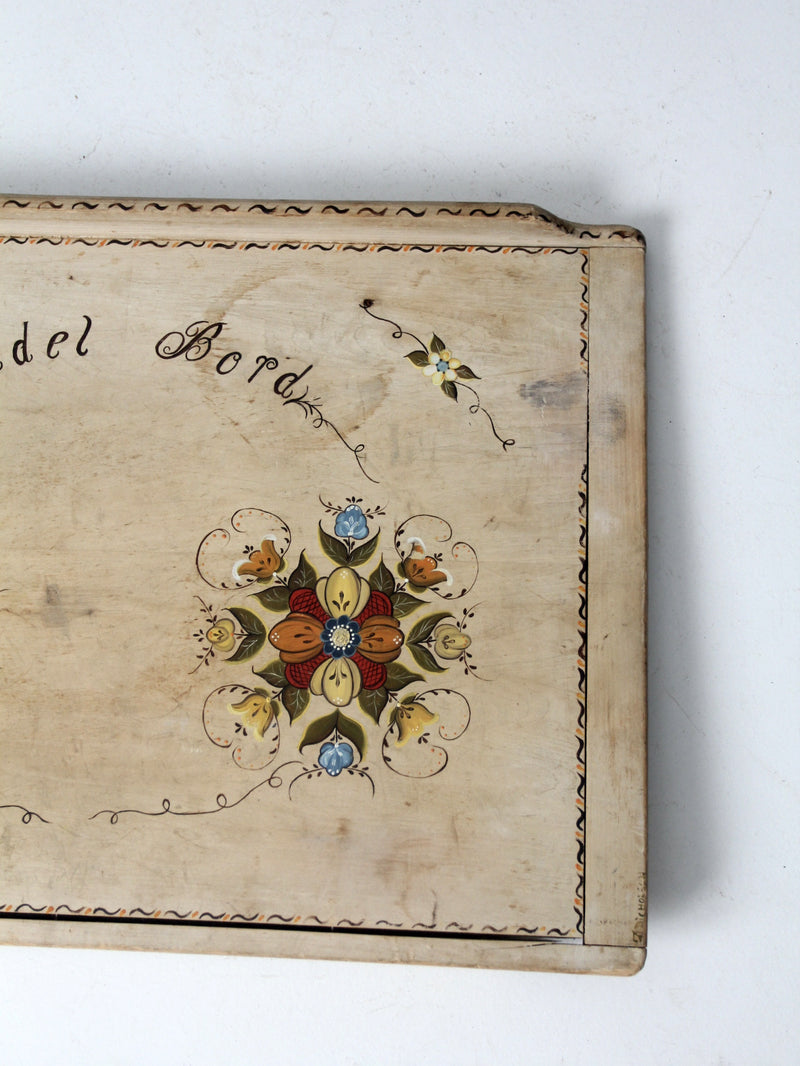 del Bord